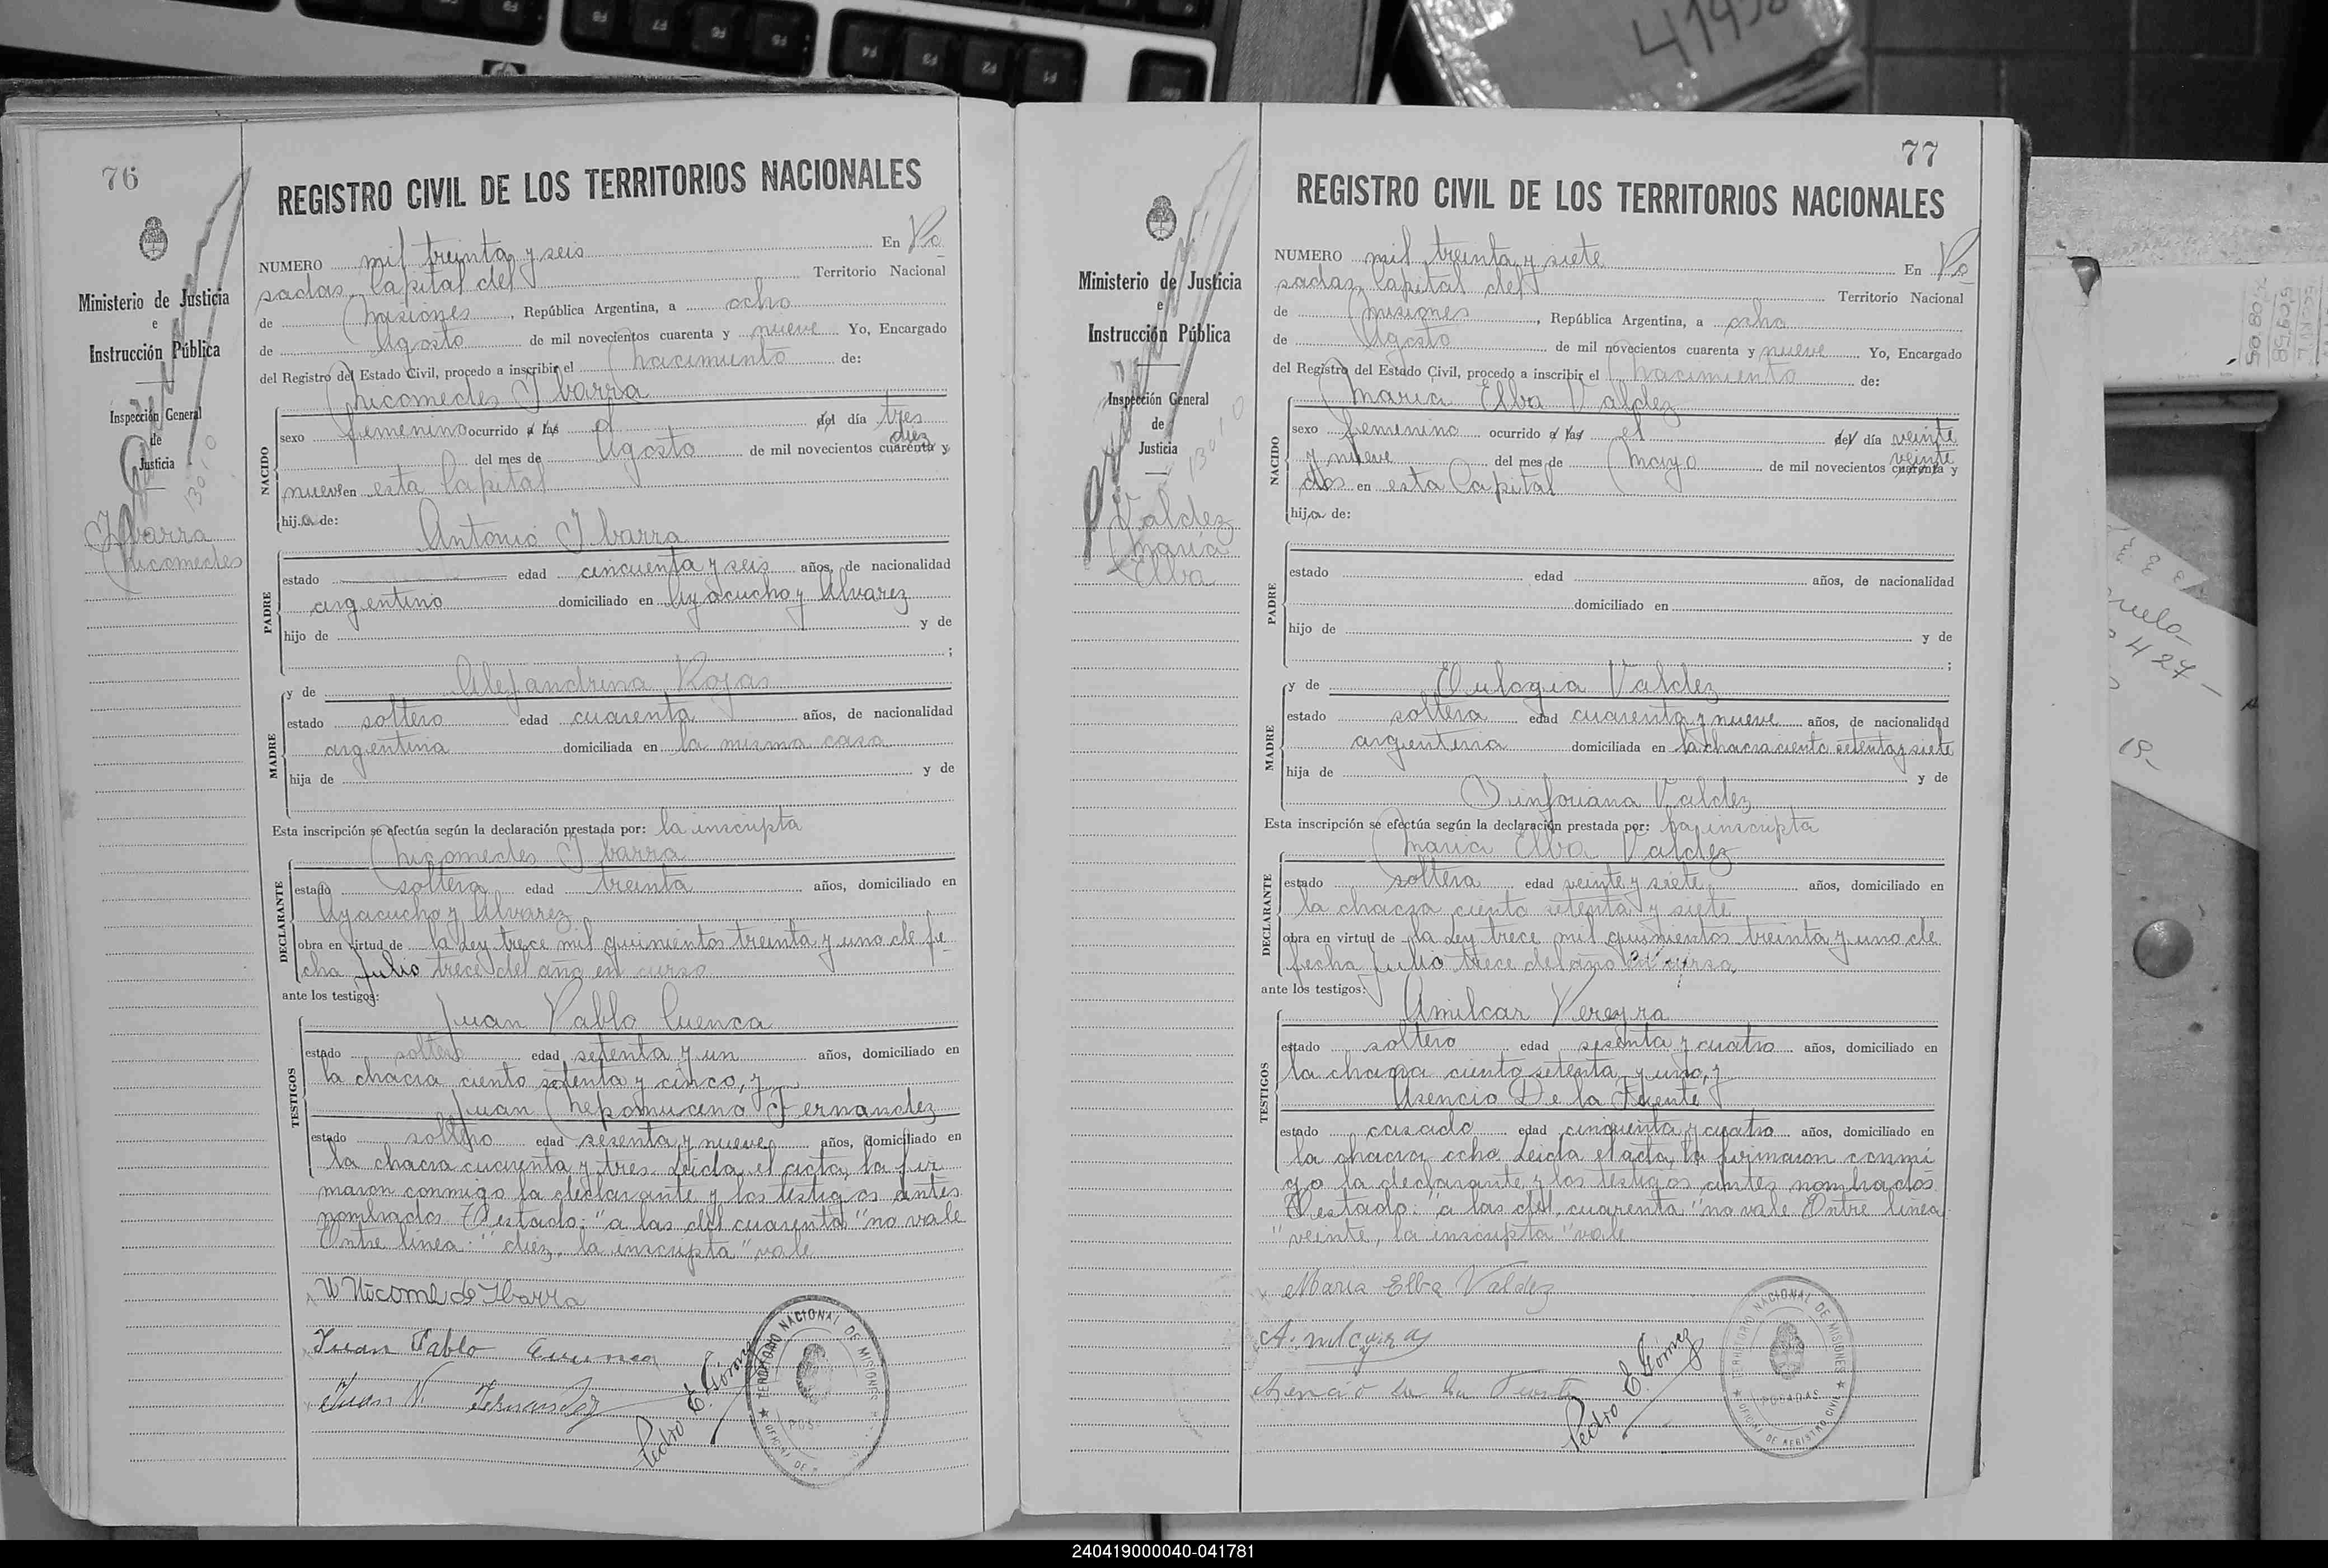 41958
76
REGISTRO CIVIL DE LOS TERRITORIOS NACIONALES
Ministerio de Justicia
e
Instrucción Pública
Inspección General
de
Justicia
13010
Ibarra
Nicomedes
NUMERO mil treinta y seis En Po
sadas, Capital del Territorio Nacional
de Misiones, República Argentina, a ocho
de Agosto de mil novecientos cuarenta y nueve Yo, Encargado
del Registro del Estado Civil, procedo a inscribir el nacimiento de:
Nicomedes Ibarra
NACIDO
sexo femenino ocurrido a las el del día tres
diez
del mes de Agosto de mil novecientos cuarenta y
nueve en esta Capital
hija de:
Antonio Ibarra
PADRE
estado edad cincuenta y seis años, de nacionalidad
argentino domiciliado en Ayacucho y Alvarez
hijo de y de
;
y de Alejandrina Rojas
MADRE
estado soltero edad cuarenta años, de nacionalidad
argentina domiciliada en la misma casa
hija de y de
Esta inscripción se efectúa según la declaración prestada por: la inscripta
Nicomedes Ibarra
DECLARANTE
estado soltera edad treinta años, domiciliado en
Ayacucho y Alvarez
obra en virtud de la Ley trece mil quinientos treinta y uno de fe
cha Julio trece del año en curso
ante los testigos:
Juan Pablo Cuenca
TESTIGOS
estado soltero edad setenta y un años, domiciliado en
la chacra ciento setenta y cinco, y
Juan Nepomuceno Fernandez
estado soltero edad sesenta y nueve años, domiciliado en
la chacra cuarenta y tres. Leida el acta, la fir
maron conmigo la declarante y los testigos antes
nombrados. Testado: "a las del cuarenta" no vale
Entre linea: "diez, la inscripta" vale
Nicomede Ibarra
Juan Pablo Cuenca
Juan N. Fernandez
Pedro E. Gómez
TERRITORIO NACIONAL DE MISIONES
77
REGISTRO CIVIL DE LOS TERRITORIOS NACIONALES
Ministerio de Justicia
e
Instrucción Pública
Inspección General
de
Justicia
13010
Valdez
Maria
Elba
NUMERO mil treinta y siete En Po
sadas, Capital del Territorio Nacional
de Misiones, República Argentina, a ocho
de Agosto de mil novecientos cuarenta y nueve Yo, Encargado
del Registro del Estado Civil, procedo a inscribir el nacimiento de:
Maria Elba Valdez
NACIDO
sexo femenino ocurrido a las el del día veinte
veinte
y nueve del mes de Mayo de mil novecientos cuarenta y
dos en esta Capital
hija de:
PADRE
estado edad años, de nacionalidad
domiciliado en
hijo de y de
;
y de Eulogia Valdez
MADRE
estado soltera edad cuarenta y nueve años, de nacionalidad
argentina domiciliada en la chacra ciento setenta y siete
hija de y de
Valdez
Esta inscripción se efectúa según la declaración prestada por: la inscripta
Maria Elba Valdez
DECLARANTE
estado soltera edad veinte y siete años, domiciliado en
la chacra ciento setenta y siete
obra en virtud de la Ley trece mil quinientos treinta y uno de
fecha Julio trece del año en curso,
ante los testigos:
Amilcar Pereyra
TESTIGOS
estado soltero edad sesenta y cuatro años, domiciliado en
la chacra ciento setenta y uno, y
Asencio De la Fuente
estado casado edad cinquenta y cuatro años, domiciliado en
la chacra ocho. Leida el acta, la firmaron conmi
go la declarante y los testigos antes nombrados
Testado: "a las del, cuarenta" no vale. Entre linea
"veinte, la inscripta" vale
Maria Elba Valdez
Asencio de la Fuente
Pedro E. Gómez
TERRITORIO NACIONAL DE MISIONES
POSADAS
OFICINA DE REGISTRO CIVIL
240419000040-041781